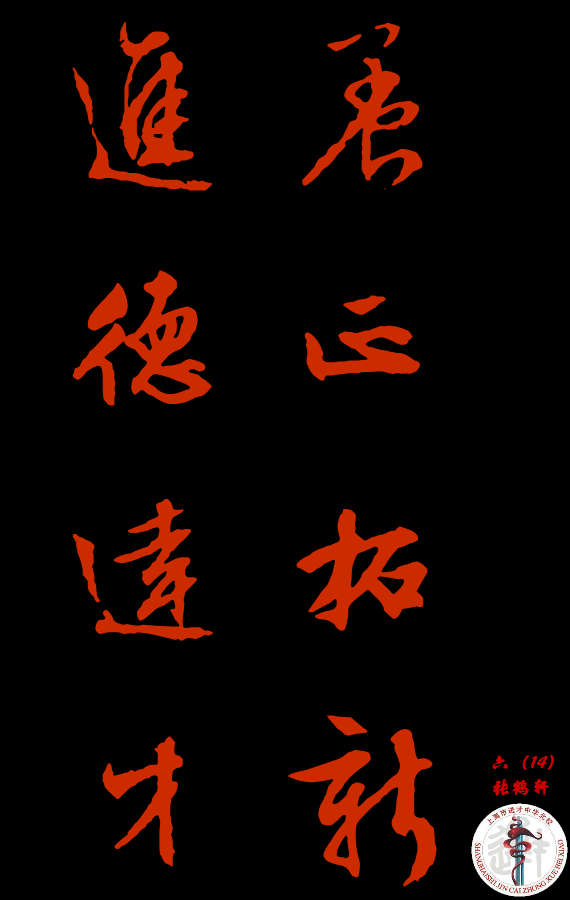 養正拓新
進德達才
六（14）
张鹤轩
上海市进才中学北校
SHANGHAISHI JIN CAI ZHONG XUE BEI XIAO